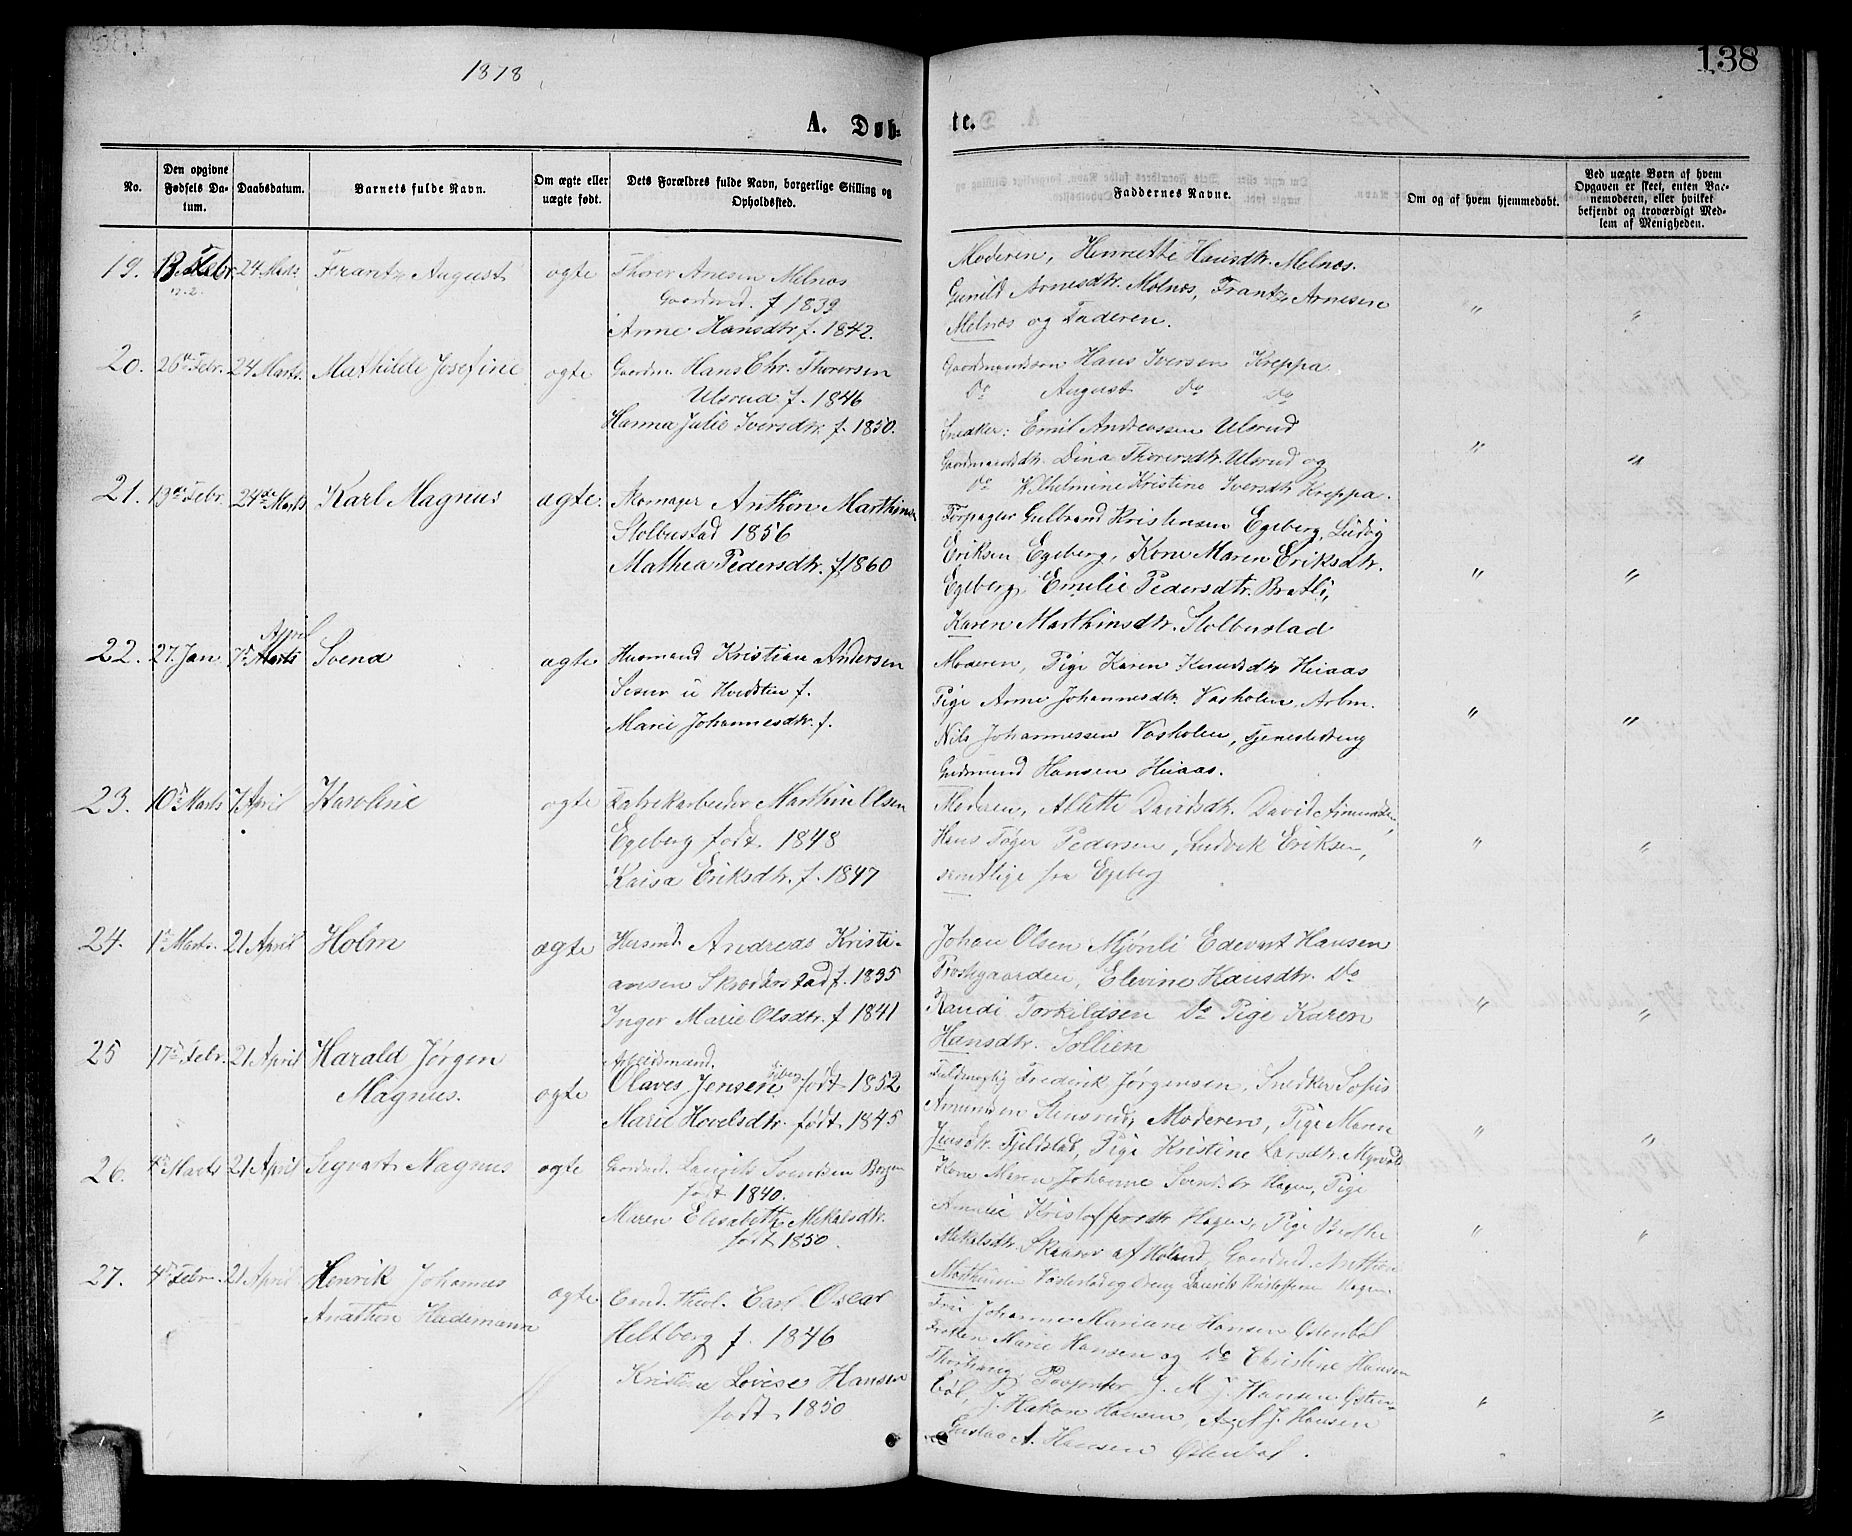 1878
138
A. Døb-
te.
No.
Den opgivne Fødsels Da-tum.
Daabsdatum.
Barnets fulde Navn.
Om ægte eller uægte født.
Dets Forældres fulde Navn, borgerlige Stilling og Opholdssted.
Faddernes Navne.
Om og af hvem hjemmedøbt.
Ved uægte Børn af hvem Opgaven er skeet, enten Bar-nemoderen, eller hvilket bekjendt og troværdigt Med-lem af Menigheden.
19. 13 Febr 24 Marts Frantz August ægte
Thorer Anesen Melnos
Gaardmd. f 1839
Anne Hansdtr f. 1842.
Moderen, Henriette Hansdtr. Melnos.
Gunild Arnesdtr. Melnos, Frantz Arnesen
Melnos og Faderen. " "
20. 26 Febr. 24 Marts. Mathilde Josefine ægte
Gaardm. Hans Chr. Thoresen
Ulsrud f. 1846
Hanna Julie Iversdtr. f. 1850.
Gaardmandssøn Hans Iversen Kreppa
Do August Do Do
Snedker: Emil Andreassen Ulsrud
Gaardmandsdtr. Dina Thorersdtr. Ulsrud og
Do Wilhelmine Kristine Iversdtr Kreppa. " "
21. 19de Febr. 24de Marts Karl Magnus ægte.
Skomager Anthon Marthinsen
Stolbustad 1856
Mathea Pedersdtr. f 1860
Forpagter Gulbrand Kristensen Egeberg, Ludvig
Eriksen Egeberg, Kone Maren Eriksdtr.
Egeberg, Emelie Pedersdtr. Bratli,
Karen Marthinsdtr. Stolbustad " "
22. 27. Jan 7de April Svend ægte
Husmand Kristian Andersen
u Hvidstin f.
Marie Johannesdtr. f.
Moderen, Pige Karen Knudsdtr Heiaas
Pige Anne Johannesdtr. Vasholen, Arbm.
Nils Johannessen Vasholen, tjenestedreng
Gudmund Hansen Heiaas. " "
23. 10de Marts 7 April Karoline ægte
Fabrikarbeider Marthin Olsen
Egeberg født 1848
Kaisa Eriksdtr. f. 1847
Moderen, Allette Davidsdtr. David
Hans Tøger Pedersen, Ludvik Eriksen,
samtlige fra Egeberg " "
24. 1ste Marts. 21 April Holm ægte
Husmd. Andreas Kristi-
ansen Skræderstad f. 1835
Inger Marie Olsdtr. f 1841
Johan Olsen Mjønli Edevart Hansen
Prostgaarden, Elevine Hansdtr. Do
Randi Torkildsen Do Pige Karen
Hansdtr. Sollien " "
25 17de Febr. 21 April Harald Jørgen
Magnus. ægte
Arbeidsmand.
Olaves Jensen født 1852
Marie Hovelsdtr. født 1845
Frederik Jørgensen, Snedker Sofus
Amundsen Stensrud, Moderen, Pige Maren
Jensdtr. Fjeldstad, Pige Kristine Larsdtr. Myrvold " "
26. 4de Marts 21 April Segvart Magnus ægte
Gaardmd. Laurits Svendsen Borgen
født 1840.
Maren Elisabeth Mekalsdtr.
født 1850.
Kone Maren Johanne Svendsdtr Hagen, Pige
Amalie Kristoffersdtr Hagen, Pige
Mekalsdtr. Skaarer af Høland, Gaardmd. Anthon
Marthinsen og Dreng Laurits Kristoffersen Hagen " "
27. 4de Febr. 21 April Henrik Johannes
Anathon Heidemann ægte.
Cand. theol. Carl Oscar
Heltberg f. 1846
Kristine Lovise Hansen
født 1850
Frue Johanne Mariane Hansen Østenbøl
Frøken Marie Hansen og Do Christine Hansen
J. M. J. Hansen Østen-
bøl, J. Hakon Hansen, J. Hansen
Gustav A. Hansen Østenbøl. " "